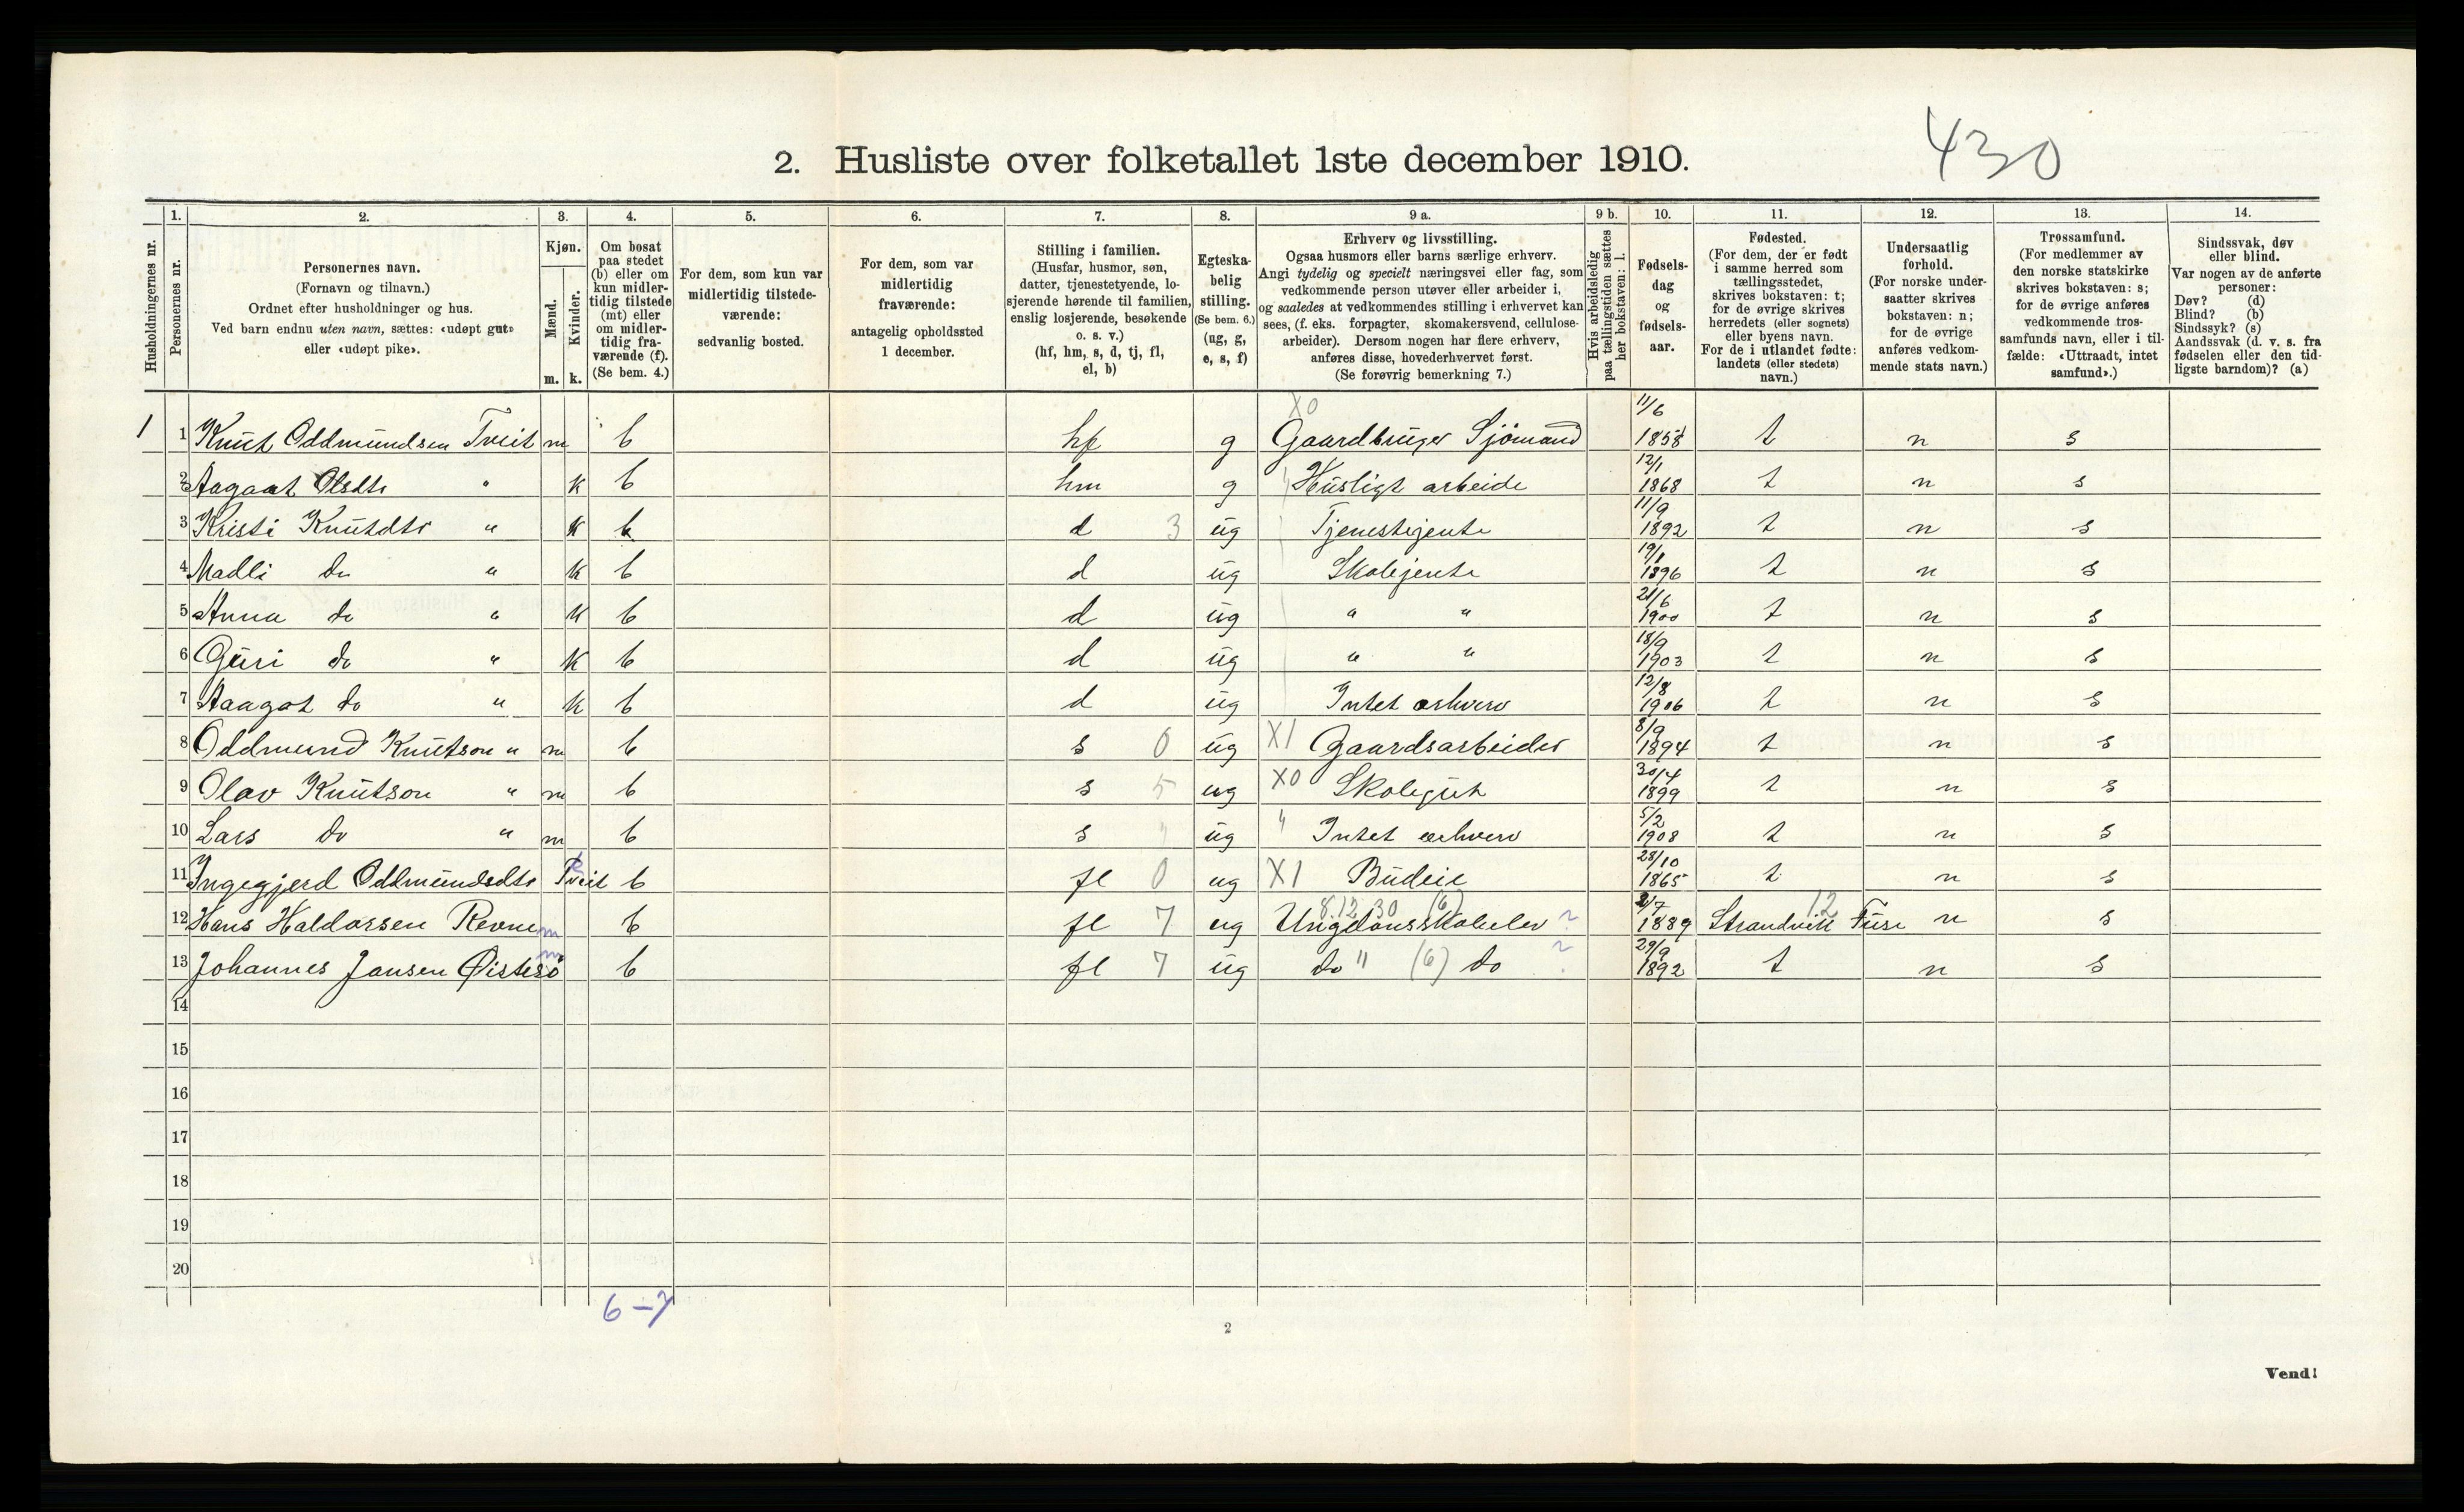 430
2. Husliste over folketallet 1ste december 1910.
Husholdningernes nr.
1. Personernes nr.
2. Personernes navn.
(Fornavn og tilnavn.)
Ordnet efter husholdninger og hus.
Ved barn endnu uten navn, sættes: «udøpt gut»
eller «udøpt pike».
3. Kjøn.
Mænd. m.
Kvinder. k.
4. Om bosat
paa stedet
(b) eller om
kun midler-
tidig tilstede
(mt) eller
om midler-
tidig fra-
værende (f).
(Se bem. 4.)
5. For dem, som kun var
midlertidig tilstede-
værende:
sedvanlig bosted.
6. For dem, som var
midlertidig
fraværende:
antagelig opholdssted
1 december.
7. Stilling i familien.
(Husfar, husmor, søn,
datter, tjenestetyende, lo-
sjerende hørende til familien,
enslig losjerende, besøkende
o. s. v.)
(hf, hm, s, d, tj, fl,
el, b)
8. Egteska-
belig
stilling.
(Se bem. 6.)
(ug, g,
e, s, f)
9 a. Erhverv og livsstilling.
Ogsaa husmors eller barns særlige erhverv.
Angi tydelig og specielt næringsvei eller fag, som
vedkommende person utøver eller arbeider i,
og saaledes at vedkommendes stilling i erhvervet kan
sees, (f. eks. forpagter, skomakersvend, cellulose-
arbeider). Dersom nogen har flere erhverv,
anføres disse, hovederhvervet først.
(Se forøvrig bemerkning 7.)
9 b. Hvis arbeidsledig
paa tællingstiden sættes
her bokstaven: l.
10. Fødsels-
dag
og
fødsels-
aar.
11. Fødested.
(For dem, der er født
i samme herred som
tællingsstedet,
skrives bokstaven: t;
for de øvrige skrives
herredets (eller sognets)
eller byens navn.
For de i utlandet fødte:
landets (eller stedets)
navn.)
12. Undersaatlig
forhold.
(For norske under-
saatter skrives
bokstaven: n;
for de øvrige
anføres vedkom-
mende stats navn.)
13. Trossamfund.
(For medlemmer av
den norske statskirke
skrives bokstaven: s;
for de øvrige anføres
vedkommende tros-
samfunds navn, eller i til-
fælde: «Uttraadt, intet
samfund».)
14. Sindssvak, døv
eller blind.
Var nogen av de anførte
personer:
Døv? (d)
Blind? (b)
Sindssyk? (s)
Aandssvak (d. v. s. fra
fødselen eller den tid-
ligste barndom)? (a)
1 1 Knut Oddmundsen Tveit m b hf g X0 Gaardbruger Sjömand 11/6 1858 t n s
2 Aagaat Olsdtr " k b hm g " Husligt arbeide 12/1 1868 t n s
3 Kristi Knutdtr " k b d 3 ug Tjenestejente 11/9 1892 t n s
4 Madli do " k b d ug Skolejente 19/1 1896 t n s
5 Anna do " k b d ug " " 21/6 1900 t n s
6 Guri do " k b d ug " " 18/9 1903 t n s
7 Aaagot do " k b d ug Intet erhverv 12/8 1906 t n s
8 Oddmund Knutson " m b s 0 ug X1 Gaardsarbeider 8/9 1894 t n s
9 Olav Knutson " m b s 5 ug X0 Skolegut 30/4 1899 t n s
10 Lars do " m b s " ug " Intet erhverv 5/2 1908 t n s
11 Ingegjerd Oddmundsdtr Tveit k b fl 0 ug X1 Budeie 28/10 1865 t n s
12 Hans Haldorsen Revne m b fl 7 ug 8.12.30 (6) Ungdomsskoleelev ? 2/7 1889 12 Strandvik Fuse n s
13 Johannes Jansen Øistesö m b fl 7 ug do " (6) do ? 29/9 1892 t n s
14
15
16
17
18
19
20
6-7
2
Vend!